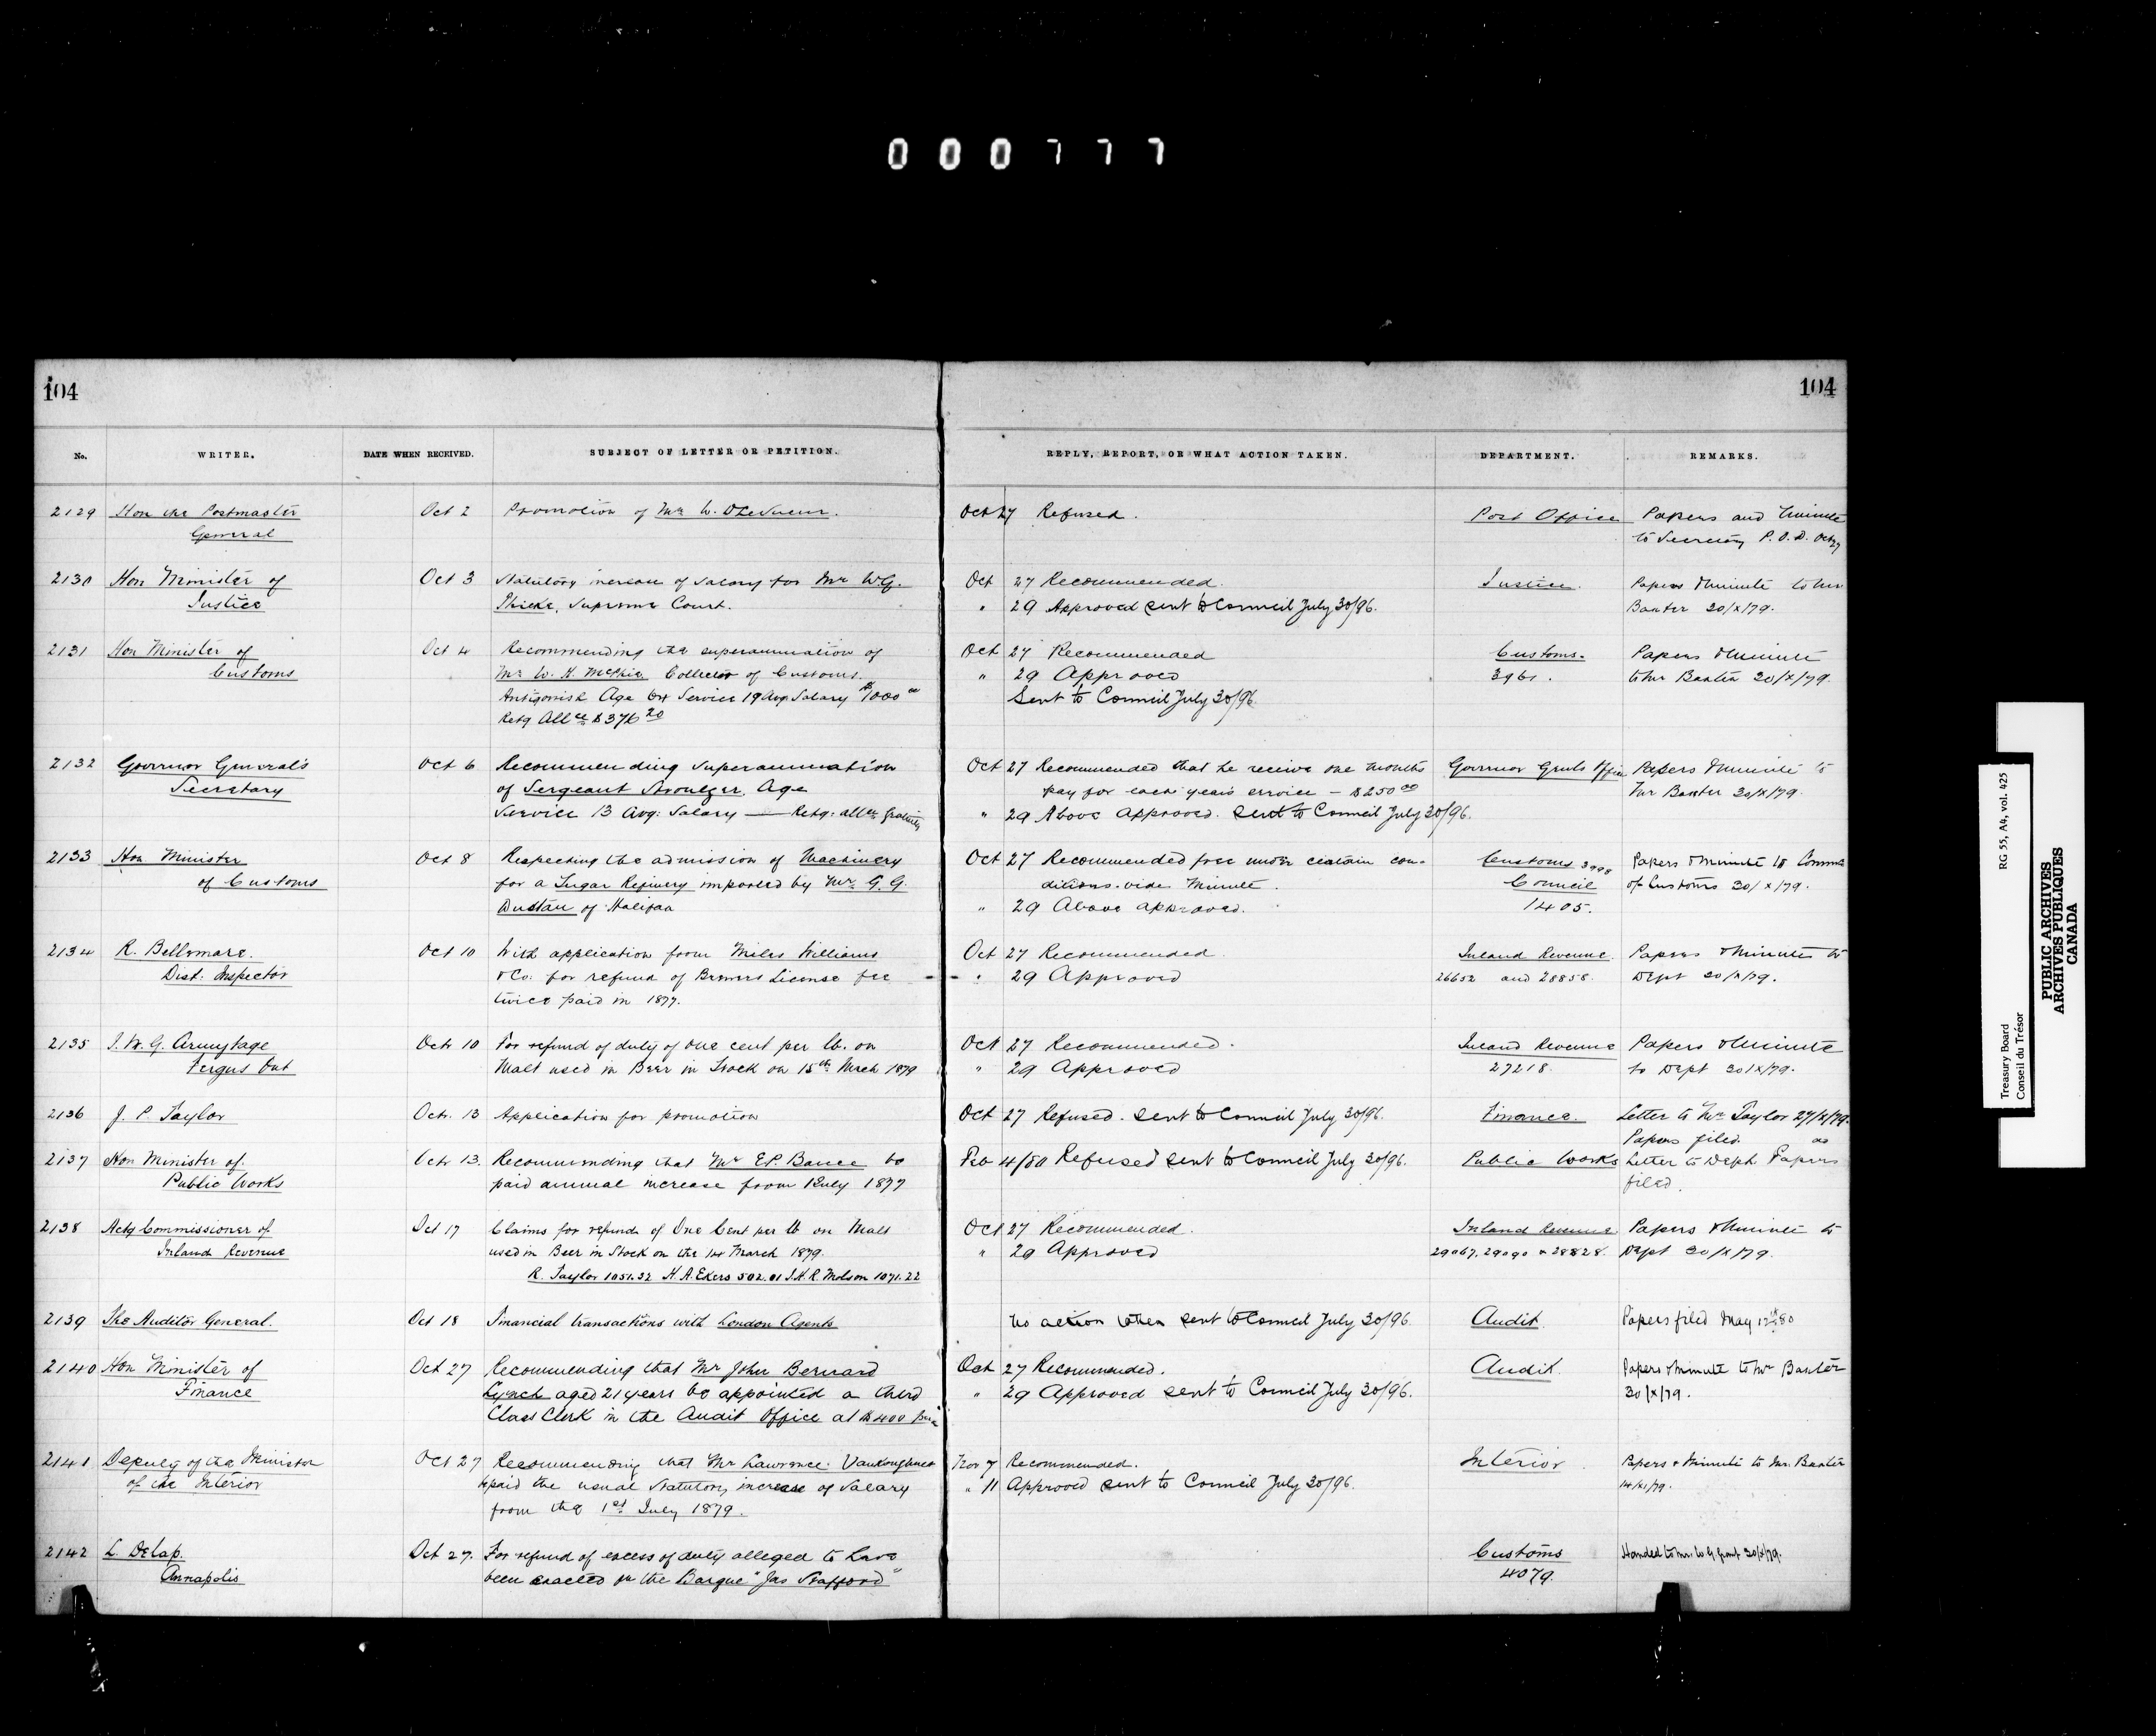 000777
104
104
No.
WRITER.
DATE WHEN RECEIVED.
SUBJECT OF LETTER OR PETITION.
REPLY, REPORT, OR WHAT ACTION TAKEN.
DEPARTMENT.
REMARKS.
2129 Hon the Postmaster Oct 2 Promotion of Mr W. D LeSueur. Oct 27 Refused. Post Office Papers and Minute
General to Secretary P.O.D. Oct 27
2130 Hon Minister of Oct 3 Statutory increase of Salary for Mr W.G. Oct 27 Recommended. Justice. Papers & Minute to Mr
Justice Supreme Court. " 29 Approved sent to Council July 30/96. Baxter 30/X/79.
2131 Hon Minister of Oct 4 Recommending the superannuation of Oct 27 Recommended Customs. Papers & Minute
Customs Mr W. H. McPhie Collector of Customs. " 29 Approved 3961. to Mr Baxter 30/X/79.
Antigonish Age Service 19 Avg Salary $1000 00 Sent to Council July 30/96
Retg Allce $376 20
2132 Governor General's Oct 6 Recommending superannuation Oct 27 Recommended that he receive one months Governor Genls Office Papers & Minute to
Secretary of Sergeant Stoulger. Age pay for each years service - $250 00 Mr Baxter 30/X/79.
Service 13 Avg: Salary — Retg: allce Gratuity " 29 Above approved. Sent to Council July 30/96.
2133 Hon Minister Oct 8 Respecting the admission of Machinery Oct 27 Recommended free under certain con- Customs 3998 Papers & Minute to Commr
of Customs for a Sugar Refinery imported by Mr. G. G. ditions. vide Minute. Council of Customs 30/X/79.
Dustan of Halifax " 29 Above approved. 1405.
2134 R. Bellemare. Oct 10 With application from Miles Williams Oct 27 Recommended. Inland Revenue. Papers & Minute to
Dist: Inspector & Co: for refund of Brewers License fee " 29 Approved 26652 and 28858. Dept 30/X/79.
twice paid in 1877.
2135 J. W. G. Armytage Octr 10 For refund of duty of one cent per lb. on Oct 27 Recommended. Inland Revenue Papers & Minute
Fergus Ont Malt used in Beer in Stock on 15th March 1879 " 29 Approved 27218. to Dept 30/X/79.
2136 J. P. Taylor Octr. 13 Application for promotion Oct 27 Refused. Sent to Council July 30/96. Finance. Letter to Mr Taylor 27/X/79.
Papers filed.
2137 Hon Minister of Octr 13. Recommending that Mr E.P. Bance be Feb 4/80 Refused sent to Council July 30/96. Public Works Letter to Dept. Papers
Public Works paid annual increase from 1 July 1877 filed.
2138 Actg Commissioner of Oct 17 Claims for refund of One Cent per lb on Malt Oct 27 Recommended. Inland Revenue. Papers & Minute to
Inland Revenue used in Beer in Stock on the 14 March 1879. " 29 Approved 29067. 29090 & 28828. Dept 30/X/79.
R. Taylor 1051.32 H. A. Ekers 502.01 J.H.R. Molson 1071.22
2139 The Auditor General. Oct 18 Financial transactions with London Agents No action taken sent to Council July 30/96. Audit. Papers filed May 12th/80
2140 Hon Minister of Oct 27 Recommending that Mr John Bernard Oct 27 Recommended. Audit. Papers & Minute to Mr Baxter
Finance Lynch aged 21 years be appointed a third " 29 Approved sent to Council July 30/96. 30/X/79.
Class Clerk in the Audit Office at $400
2141 Deputy of the Minister Oct 27 Recommending that Mr Lawrence Vankoughnet Nov 7 Recommended. Interior. Papers & Minute to Mr. Baxter
of the Interior be paid the usual Statutory increase of Salary " 11 Approved sent to Council July 30/96. 14/XI/79.
from the 1st July 1879.
2142 L. DeLap. Oct 27. For refund of excess of duty alleged to have Customs Handed to Mr. W. G. 30/X/79.
Annapolis been exacted on the Barque "Jas Stafford" 4079.
Treasury Board RG 55, A4, vol. 425
Conseil du Trésor
PUBLIC ARCHIVES
ARCHIVES PUBLIQUES
CANADA